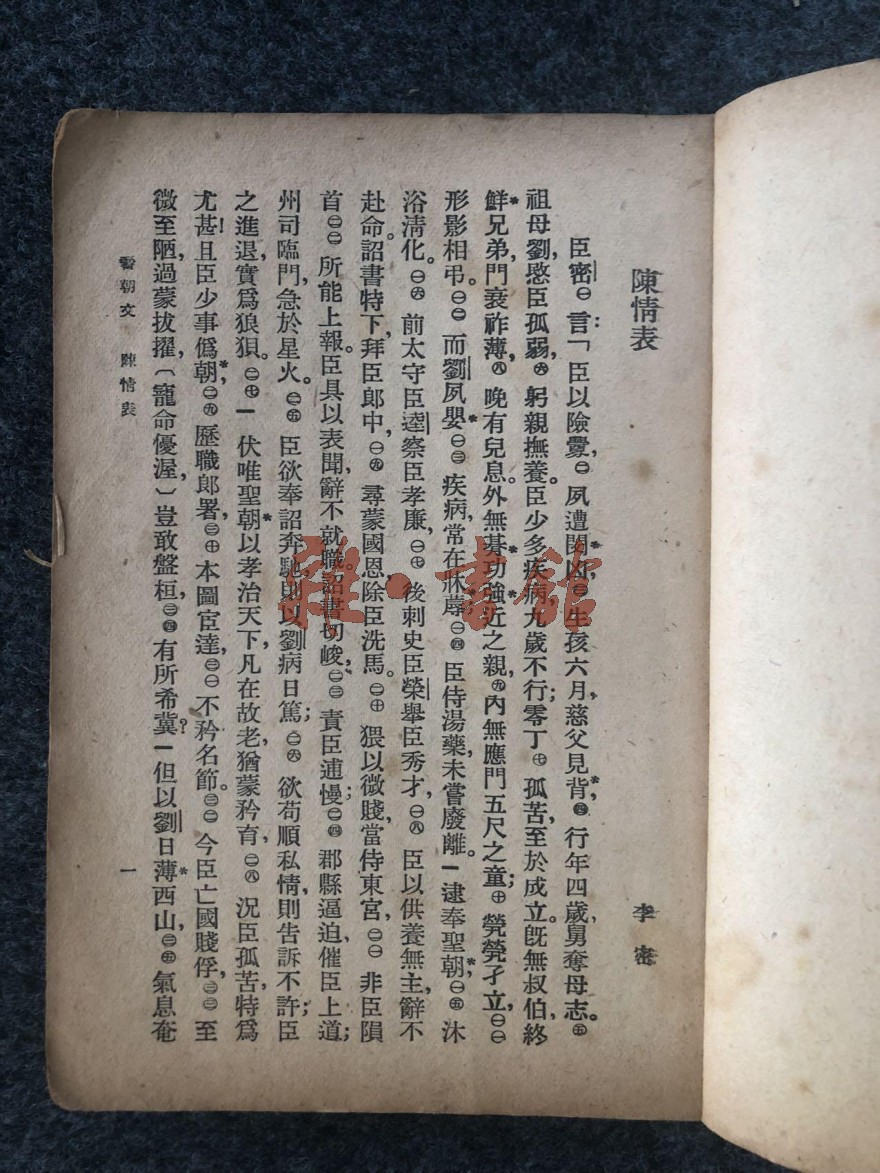 陳情表
李密
臣密㊀言:「臣以險釁,㊁夙遭閔凶,㊂生孩六月,慈父見背,㊃行年四歲,舅奪母志。㊄
祖母劉愍臣孤弱,㊅躬親撫養。臣少多疾病,九歲不行;零丁㊆孤苦,至於成立。旣無叔伯,終
鮮兄弟,門衰祚薄,㊇晚有兒息。外無朞功強近之親,㊈內無應門五尺之童;㊉煢煢孑立,㊀㊀
形影相弔。㊀㊁而劉夙嬰㊀㊂疾病,常在牀蓐,㊀㊃臣侍湯藥,未嘗廢離。ー逮奉聖朝,㊀㊄沐
浴淸化。㊀㊅前太守臣逵察臣孝廉,㊀㊆後刺史臣榮舉臣秀才,㊀㊇臣以供養無主,辭不
赴命。詔書特下,拜臣郎中,㊀㊈尋蒙國恩,除臣洗馬。㊁㊉猥以微賤,當侍東宮,㊁㊀非臣隕
首㊁㊁所能上報。臣具以表聞,辭不就職。詔書切峻,㊁㊂責臣逋慢;㊁㊃郡縣逼迫,催臣上道;
州司臨門,急於星火。㊁㊄臣欲奉詔奔馳,則以劉病日篤;㊁㊅欲苟順私情,則吿訴不許;臣
之進退,實爲狼狽。㊁㊆ー伏唯聖朝以孝治天下,凡在故老,猶蒙矜育,㊁㊇況臣孤苦,特爲
尤甚!且臣少事僞朝,㊁㊈歷職郎署,㊂㊉本圖宦達,㊂㊀不矜名節。㊂㊁今臣亡國賤俘,㊂㊂至
微至陋,過蒙拔擢,〔寵命優渥,〕豈敢盤桓,㊂㊃有所希冀?ー但以劉日薄西山,㊂㊄氣息奄
晉朝文 陳情表
一
雅·書館